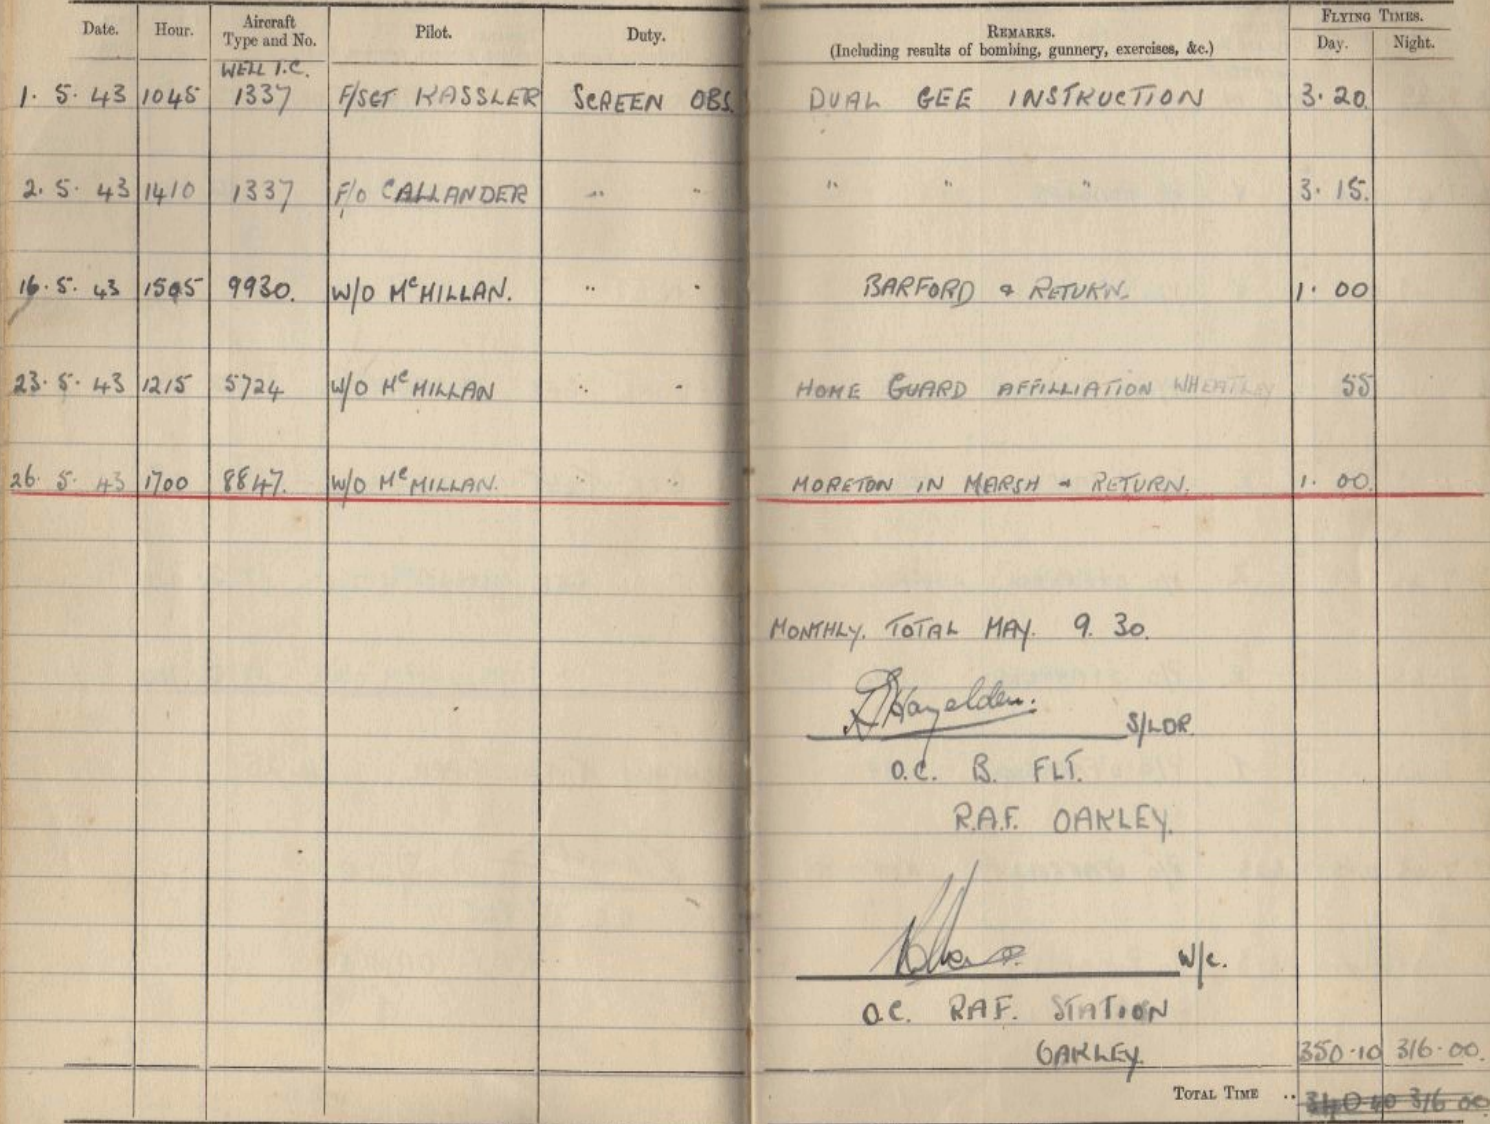 Date. Hour. Aircraft Type and No. Pilot. Duty. REMARKS. (Including results of bombing, gunnery, exercises, &c.) FLYING TIMES. Day. Night.
WELL I.C.
1. 5. 43 1045 1337 F/SGT KASSLER SCREEN OBS. DUAL GEE INSTRUCTION 3.20
2. 5. 43 1410 1337 F/O CALLANDER " " " " " 3. 15.
16. 5. 43 1505 9930. W/O McMILLAN. " " BARFORD & RETURN. 1. 00
23. 5. 43 1215 5724 W/O McMILLAN " " HOME GUARD AFFILLIATION WHEATLEY 55
26. 5. 43 1700 8847. W/O McMILLAN. " " MORETON IN MARSH & RETURN. 1. 00.
MONTHLY. TOTAL MAY. 9. 30.
Hazelden.
S/LDR.
O.C. B. FLT.
R.A.F. OAKLEY.
W/C.
O.C. R.A.F. STATION
OAKLEY.
350.10 316.00.
TOTAL TIME .. 340.40 316 00